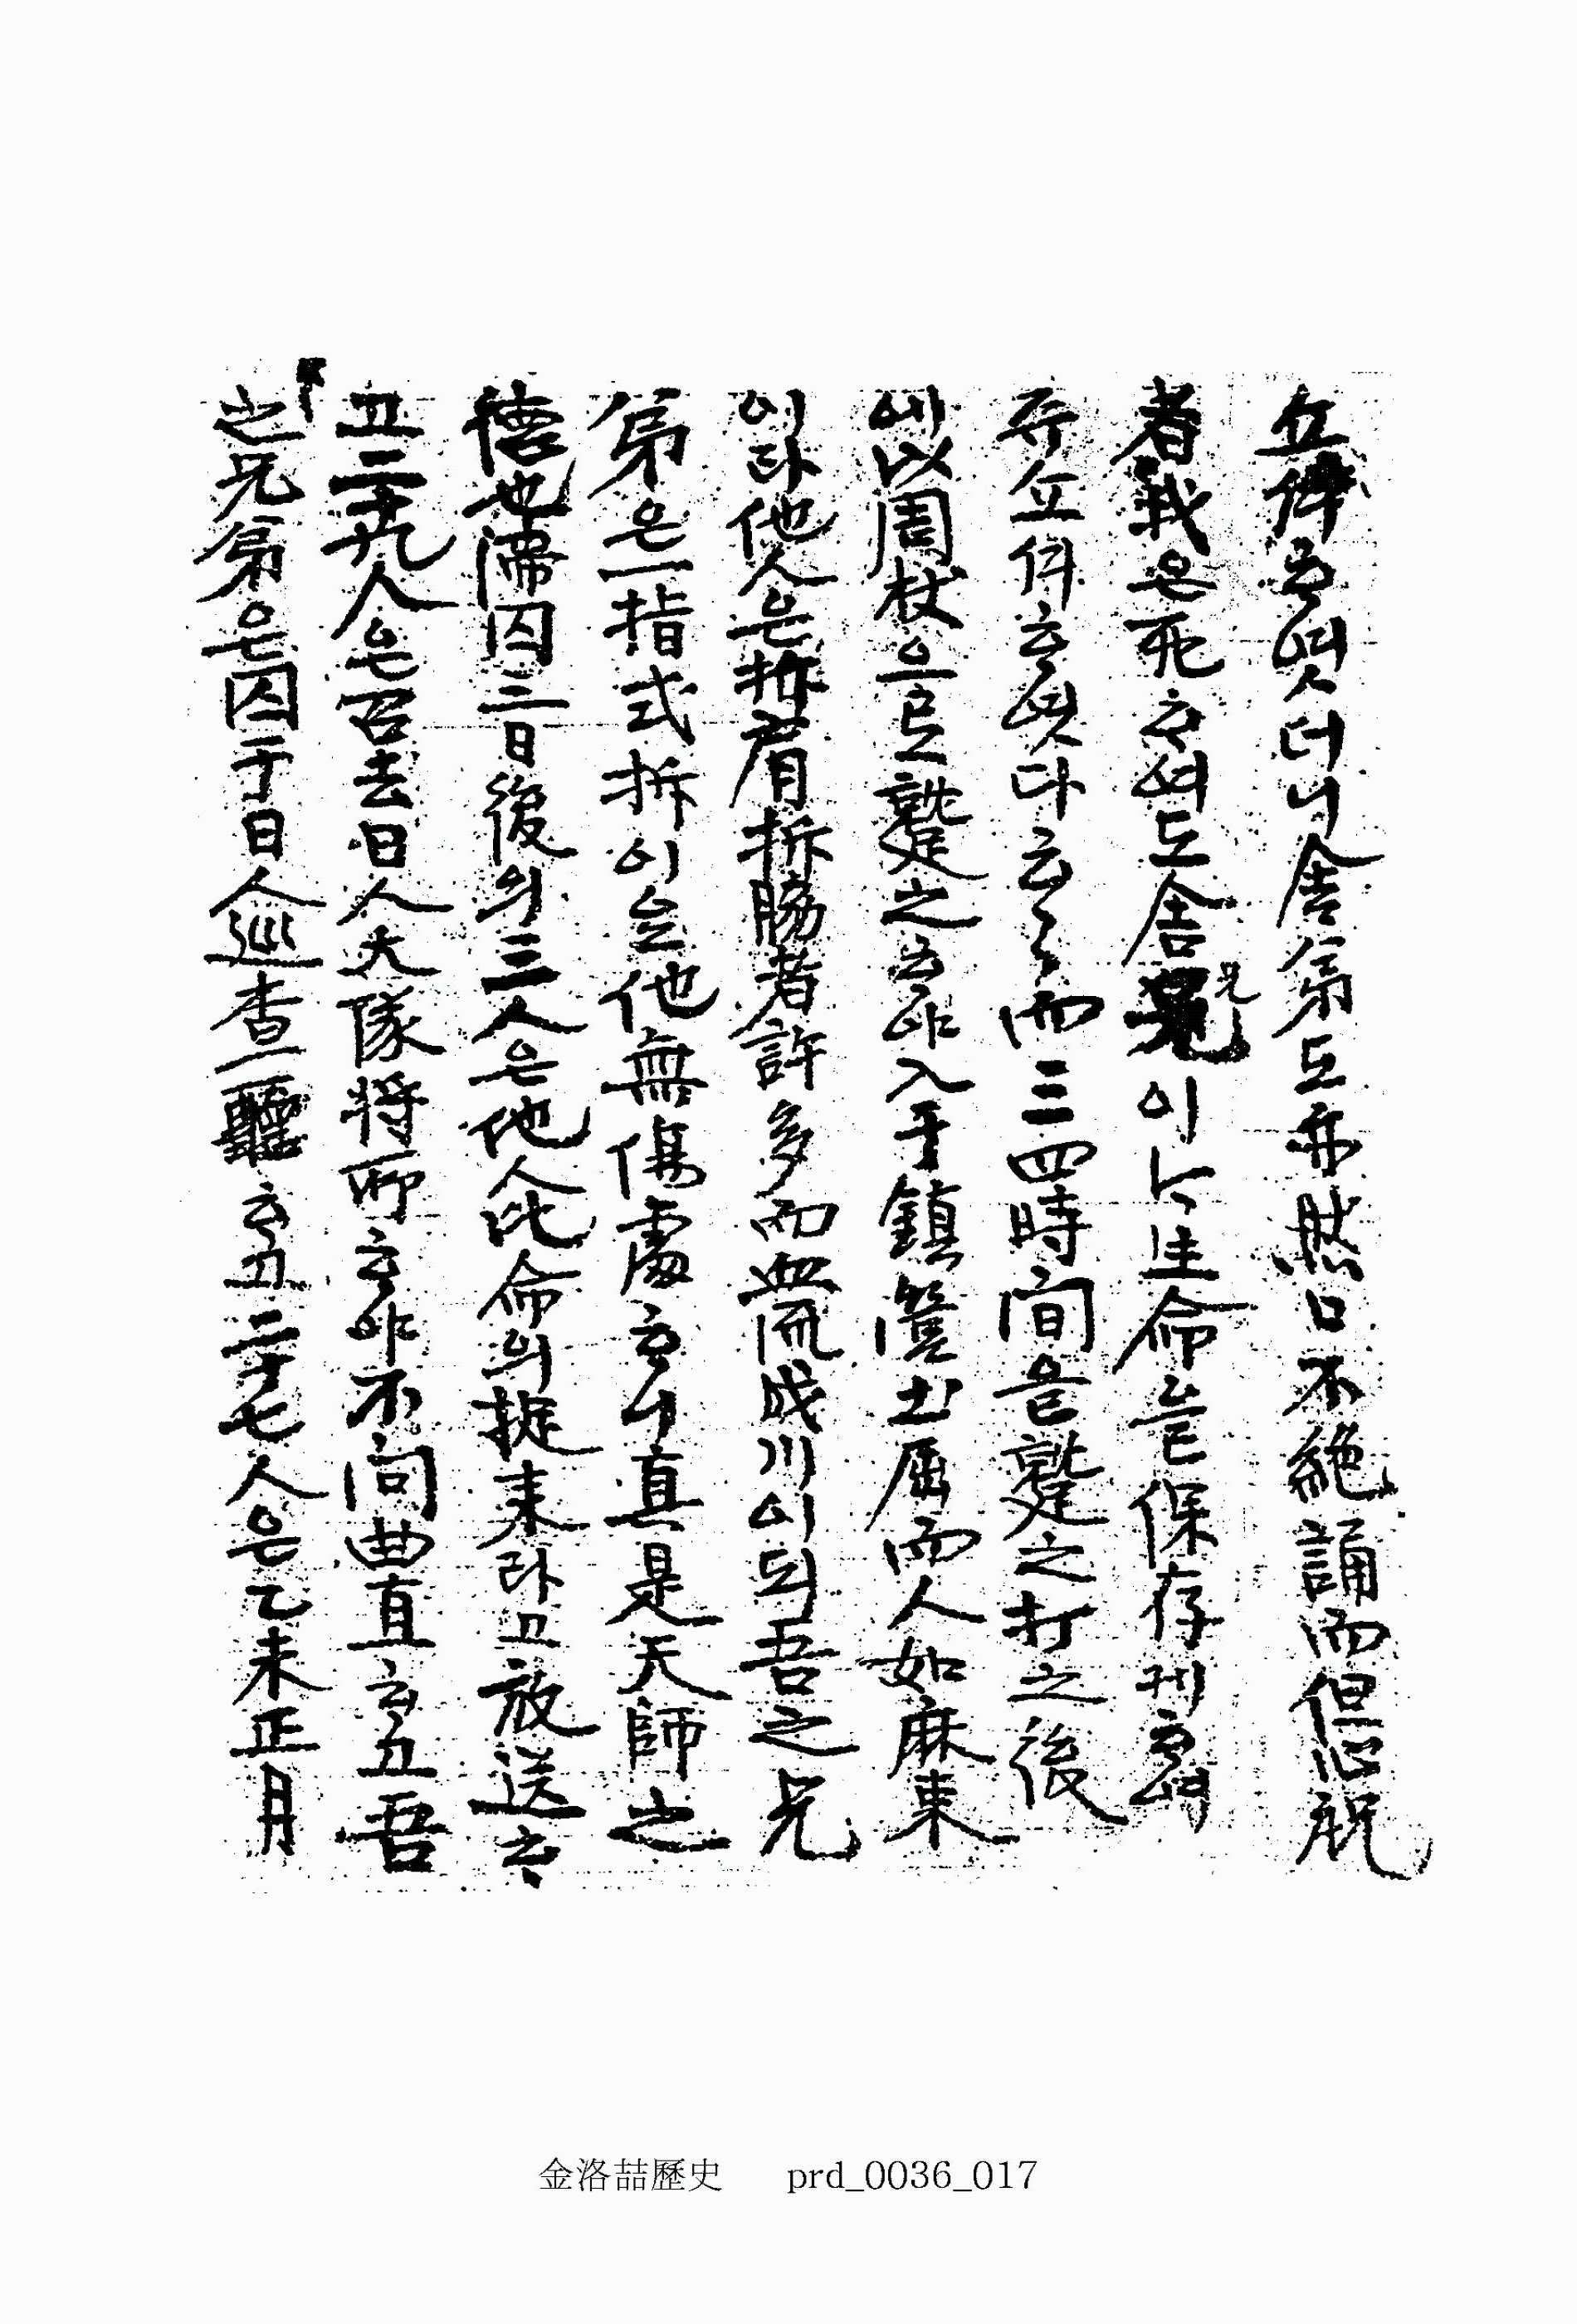 立伴ᄒᆞ엿더니舍弟도亦然口不絶誦而但心祝
者我은死ᄒᆞ여도舍兄이ᄂᆞ生命을保存케ᄒᆞ여
쥬쇼셔ᄒᆞ엿다云云而三四時間을躛之打之後
에以周杖으로躛之ᄒᆞ야入于鎭營土屋而人如麻束
이라他人은折肩折脇者許多而血流成川이되吾之兄
弟은一指式折이요他無傷處ᄒᆞ니眞是天師之
德也滯囚三日後의三人은他人此命의捉來라고放送ᄒᆞ
고二十九人은召去日人大隊將所ᄒᆞ야不問曲直ᄒᆞ고吾
之兄弟은囚于日人巡査廳ᄒᆞ고二十七人은乙未正月
金洛喆歷史 prd_0036_017